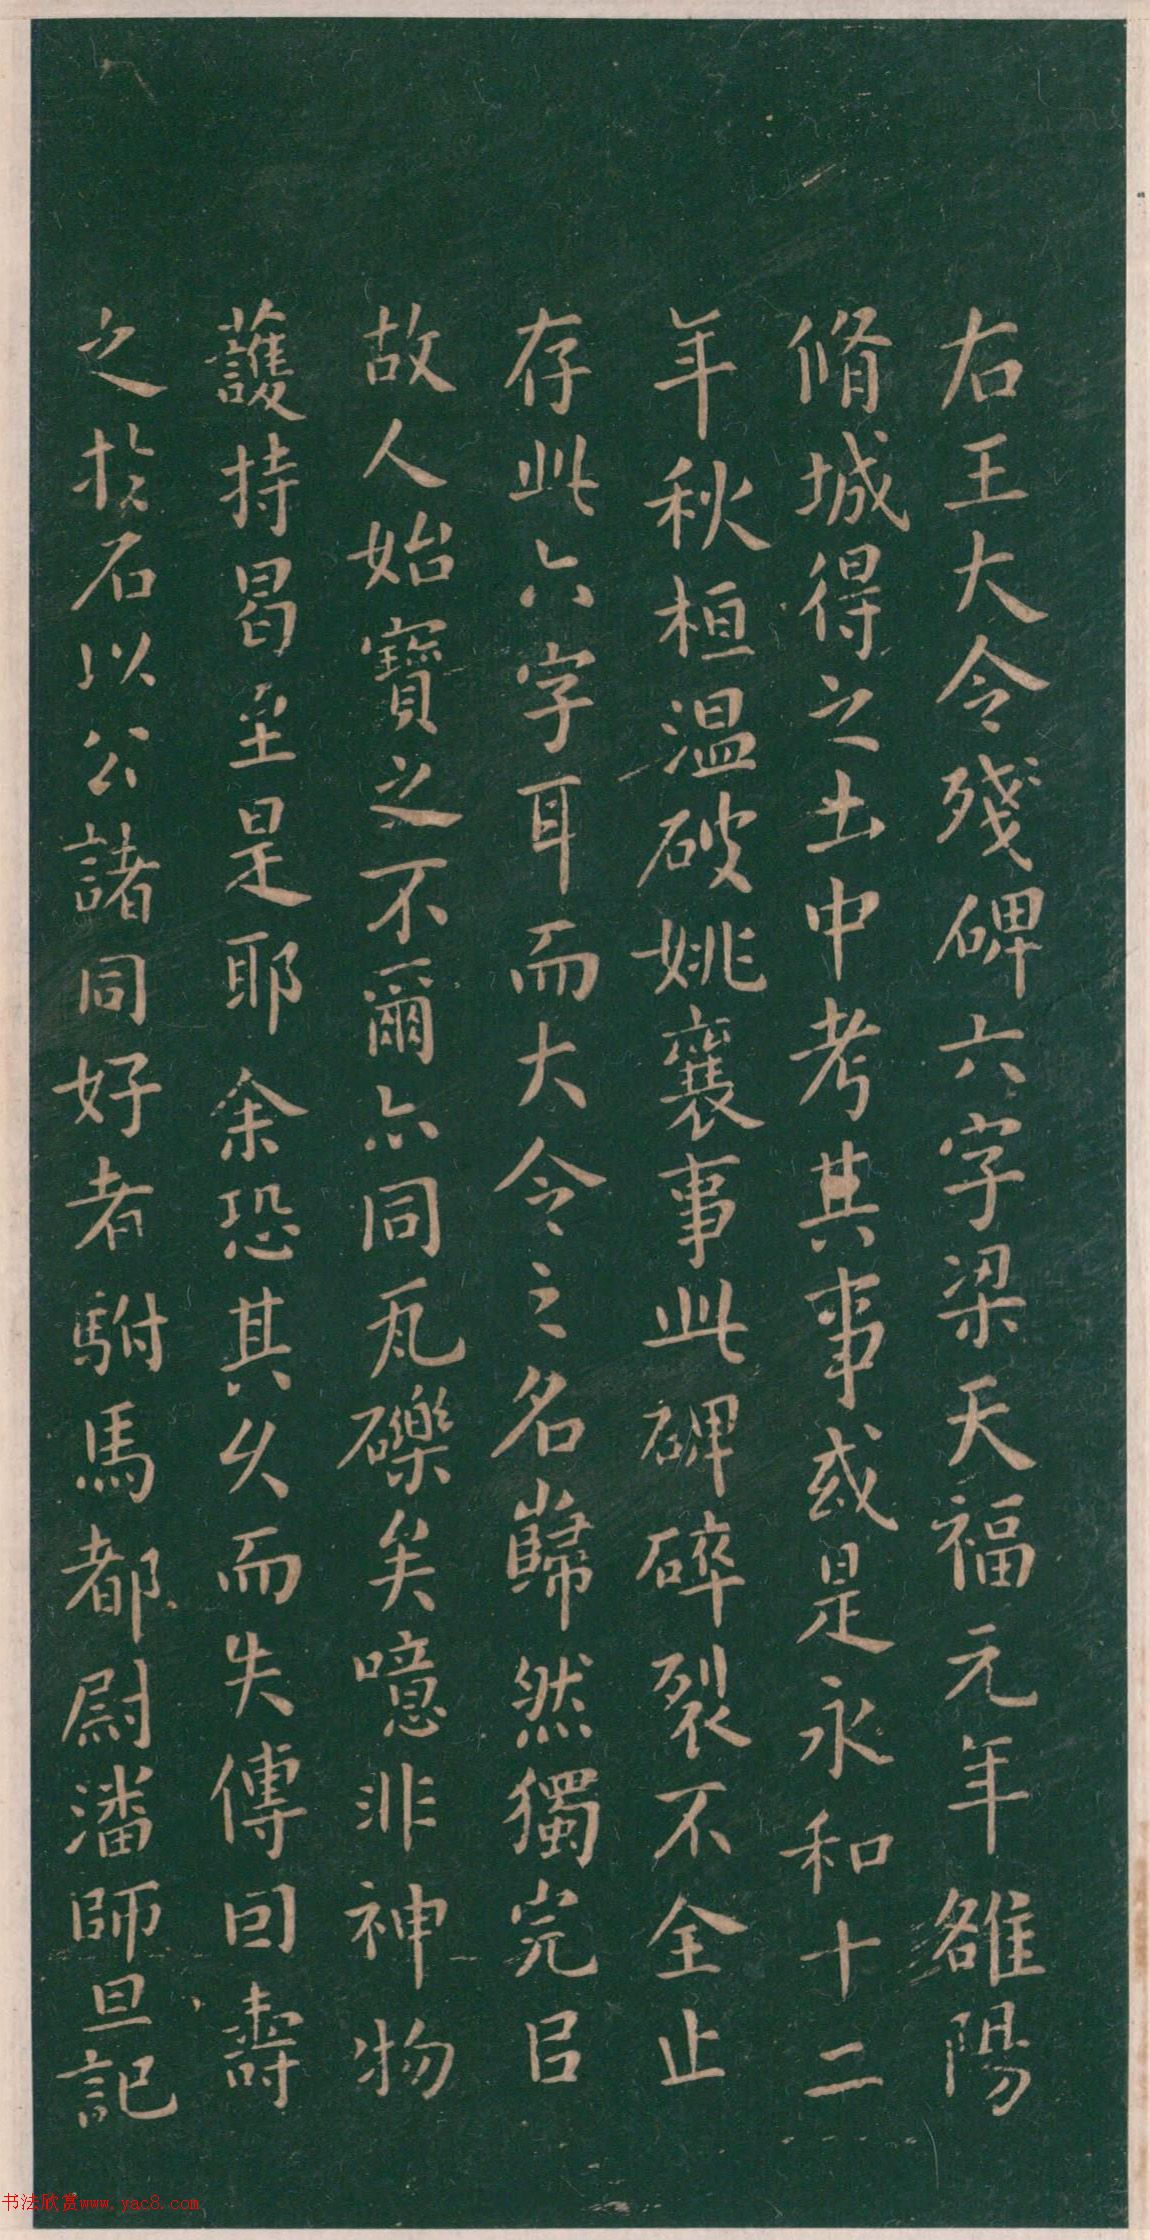 右王大令殘碑六字梁天福元年雒陽
脩城得之土中考其事或是永和十二
年秋桓溫破姚襄事此碑碎裂不全止
存此六字耳而大令之名巋然獨完㠯
故人始寶之不爾亦同瓦礫矣噫非神物
護持曷至是耶余恐其久而失傳因壽
之於石以公諸同好者駙馬都尉潘師旦記
书法欣赏www.yac8.com